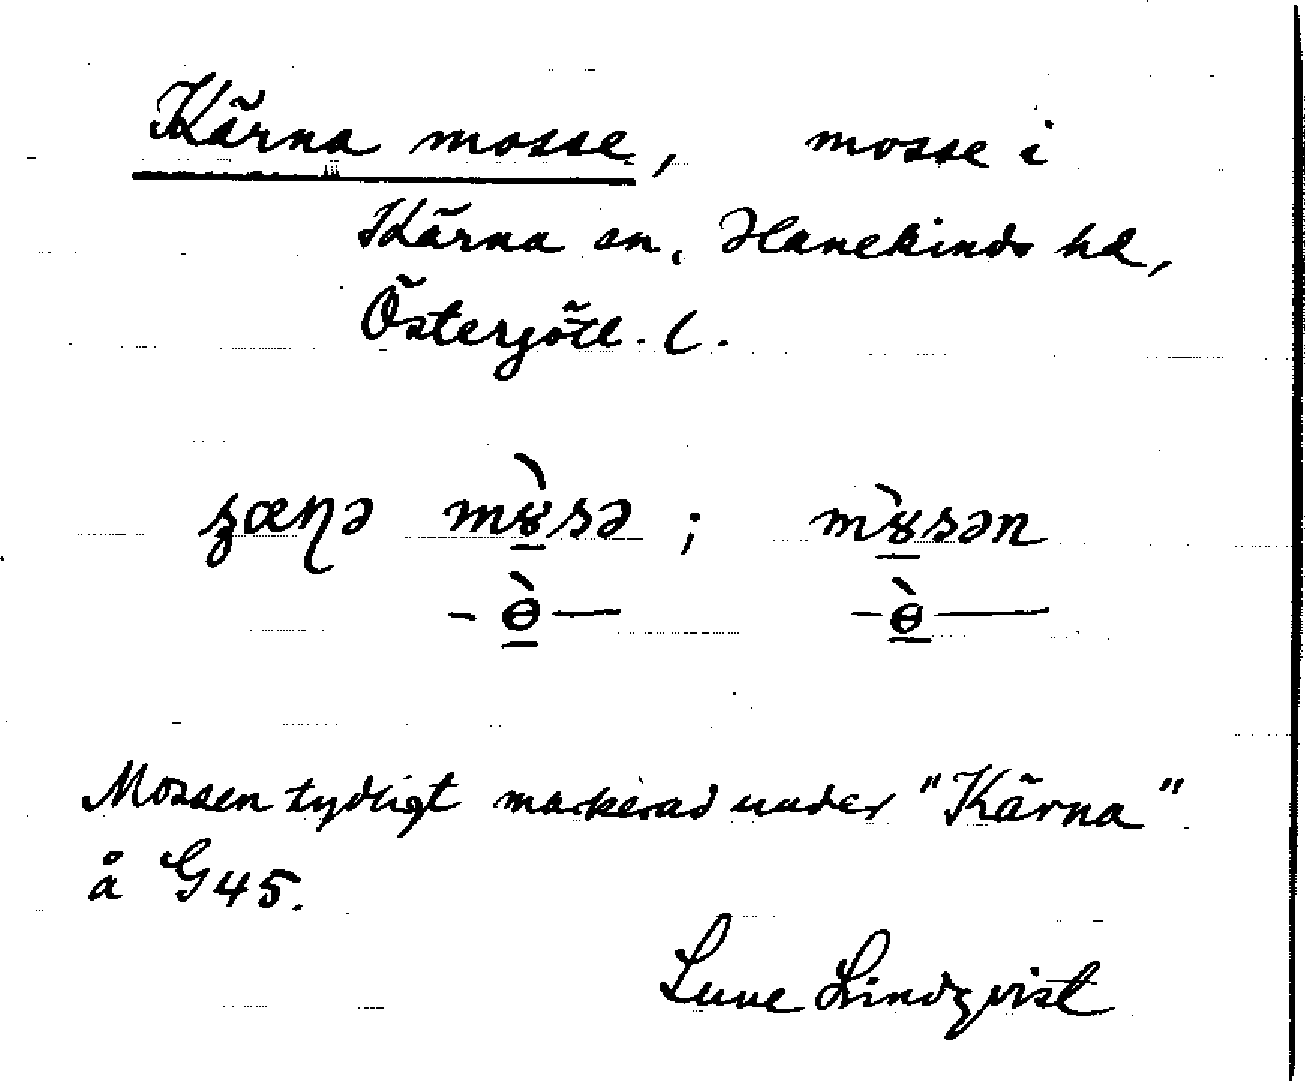 Kärna mosse, mosse i
Kärna sn, Hanekinds hd,
Östergötl. l.
mosse
Mossen tydligt markerad under "Kärna"
å G45.
Sune Lindqvist